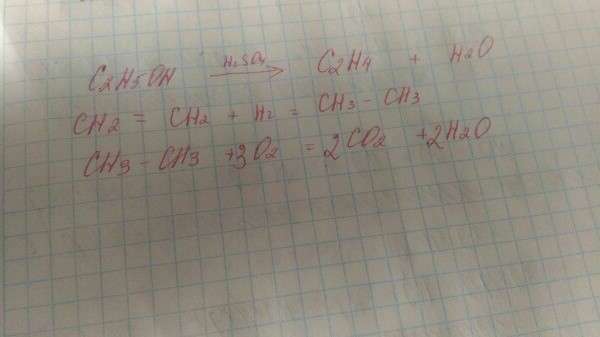 C2H5OH H2SO4 → C2H4 + H2O
CH2 = CH2 + H2 = CH3 - CH3
CH3 - CH3 + 3O2 = 2CO2 + 2H2O